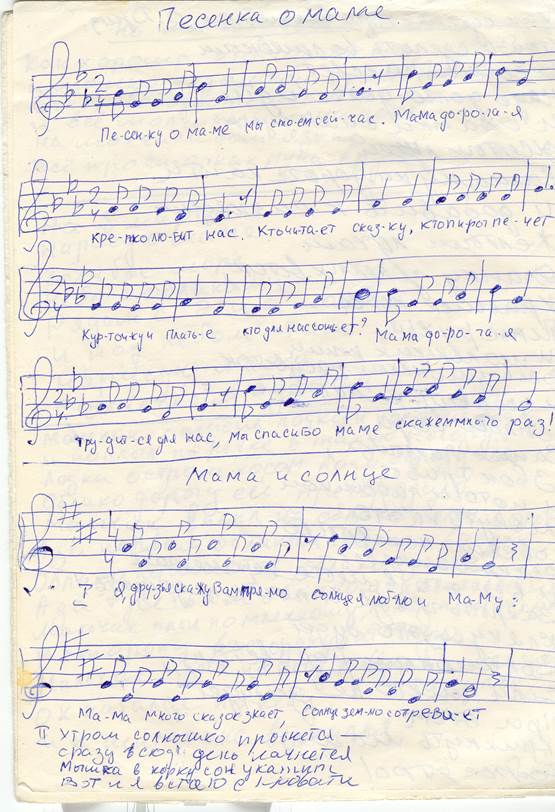 Песенка о маме
Пе-сен-ку о ма-ме мы спо-ем сей-час. Мама до-ро-га-я
Кре-пко лю-бит нас. Кто чи-та-ет сказ-ку, кто пироги пе-чет
Кур-точ-ку и плать-е кто для нас сошь-ет? Мама до-ро-га-я
тру-дит-ся для нас, мы спасибо маме скажем много раз!
Мама и солнце
I Я, друзья скажу Вам пря-мо солнце я люб-лю и Ма-му:
Ма-ма много сказок знает, Солнце зем-лю согрева-ет
II Утром солнышко проснется —
сразу всюду день начнется
Мышка в норку сон укатит
Вот и я встаю с кровати